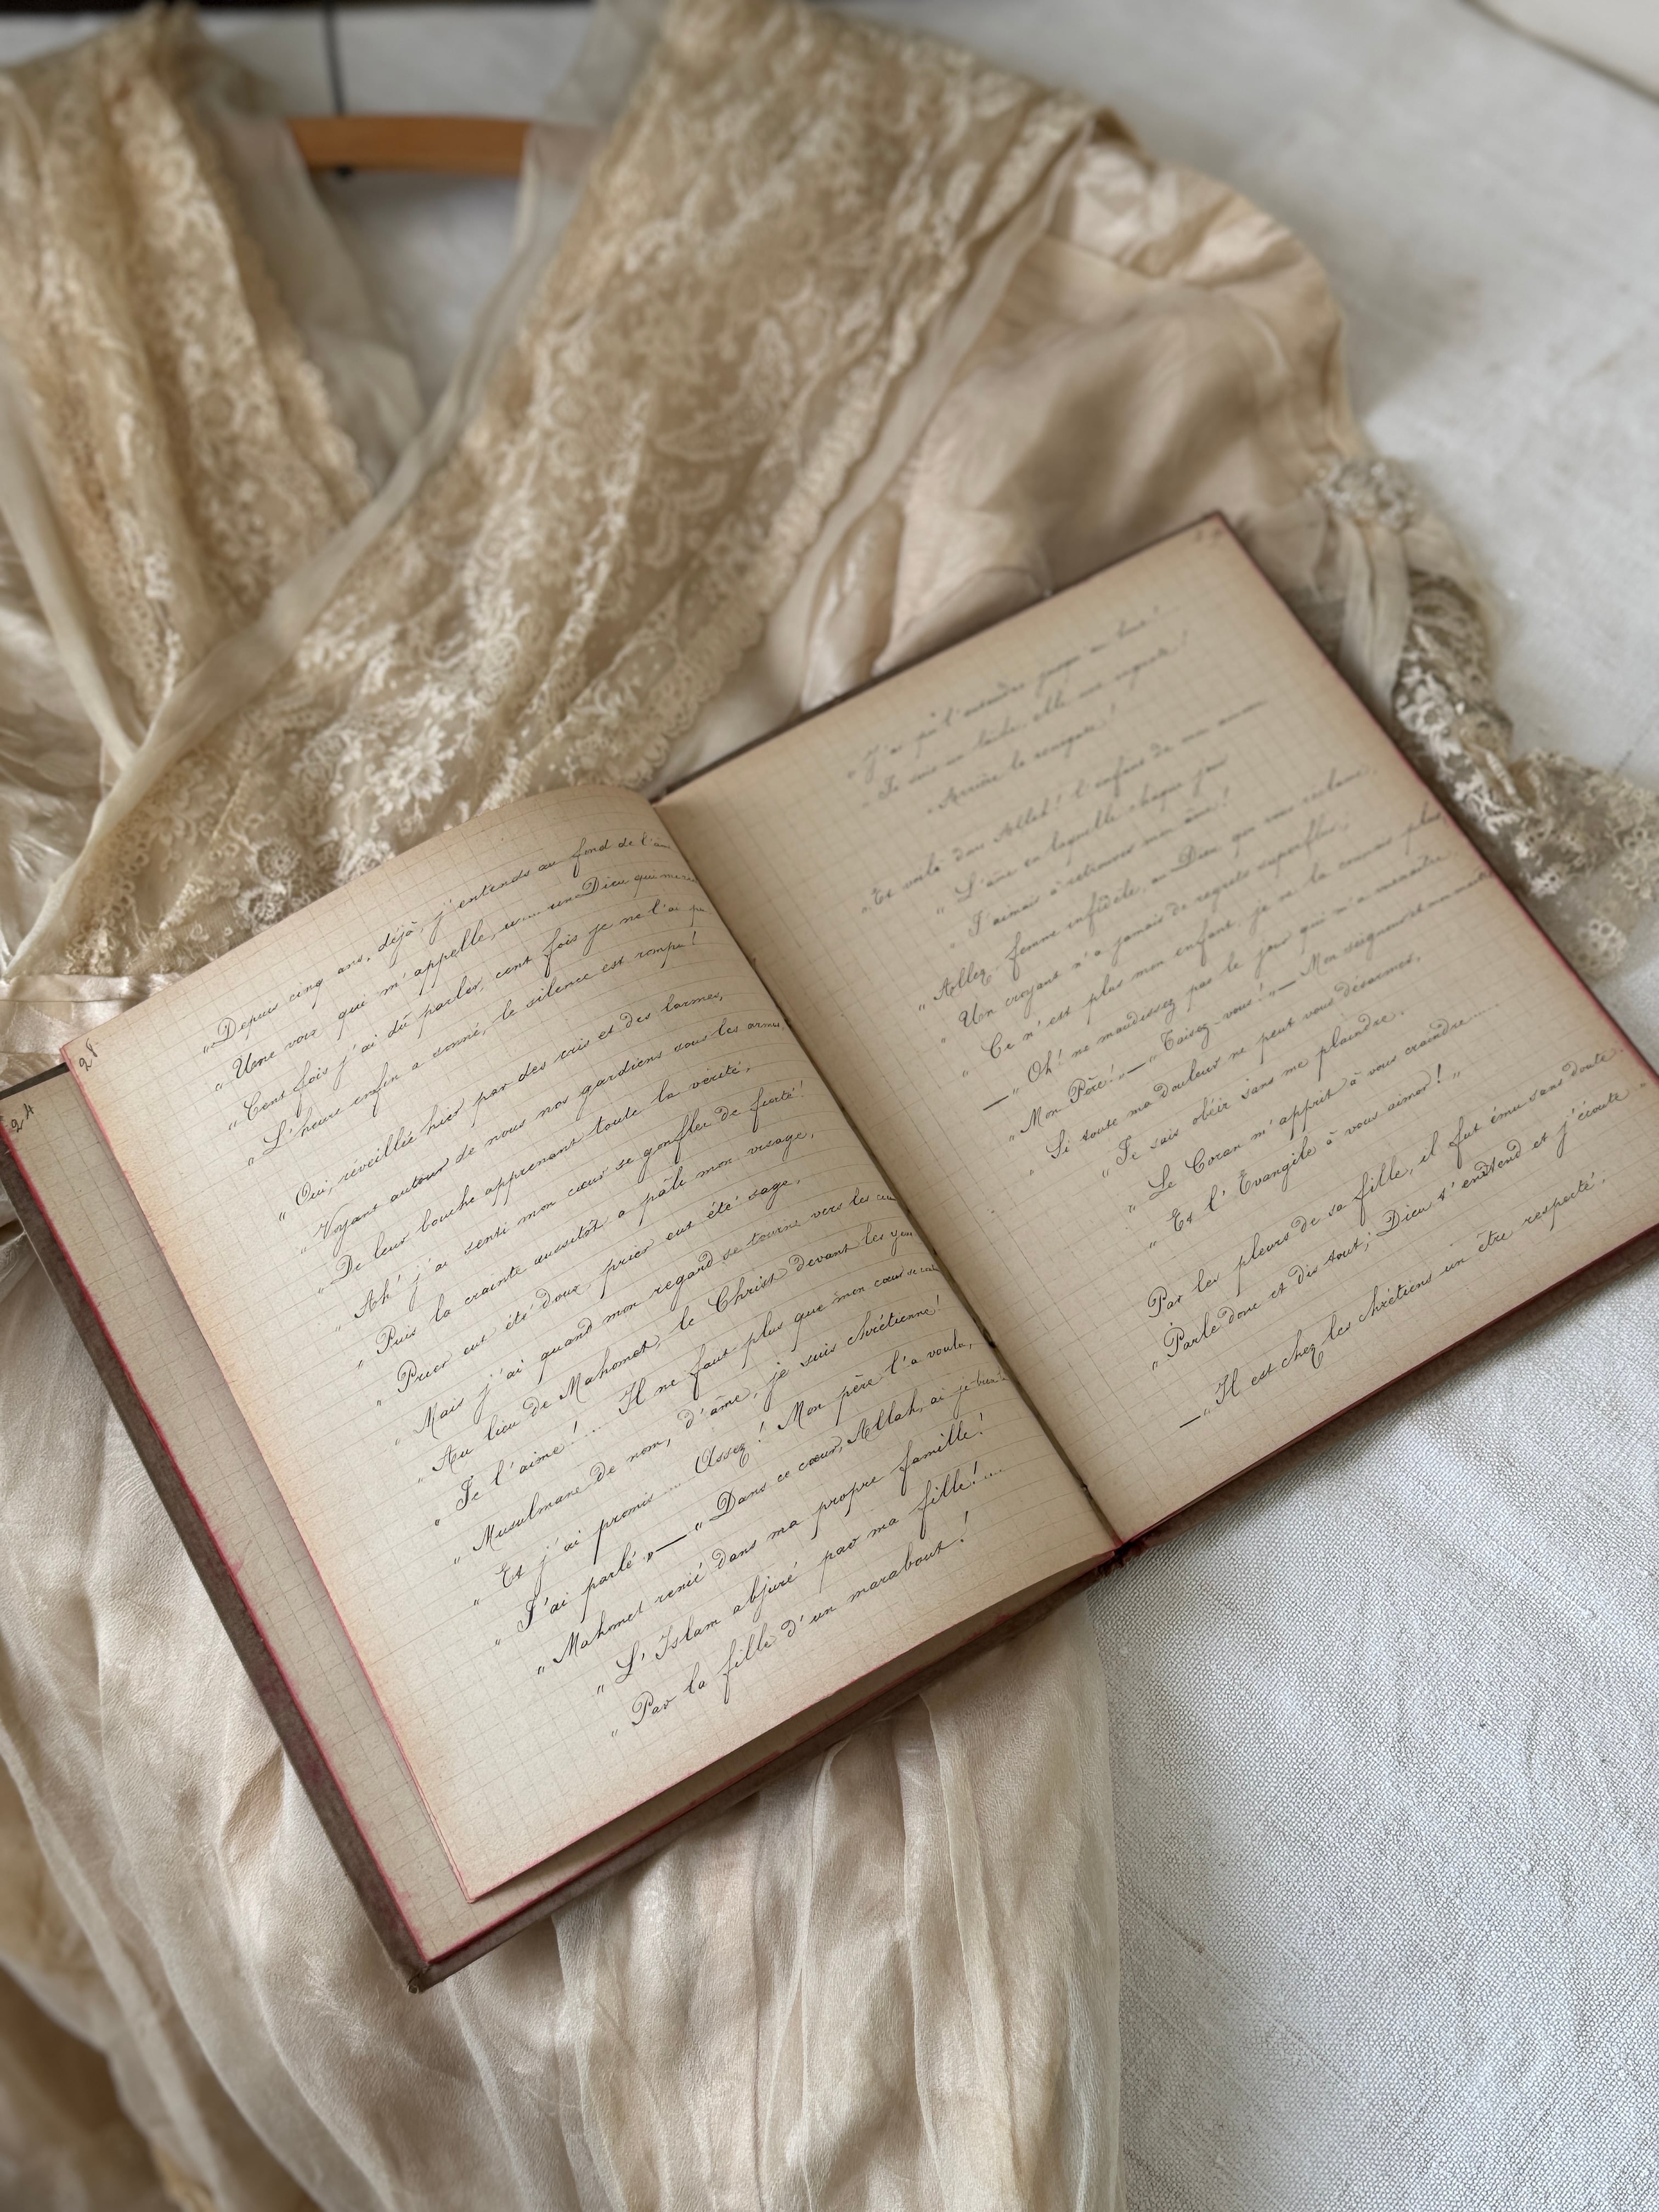 24
28
„Depuis cinq ans, déjà, j'entends au fond de l'
„Une voix qui m'appelle, un ... un Dieu qui
„Cent fois j'ai dû parler, cent fois je ne l'ai
„L'heure enfin a sonné, le silence est rompu!
„Oui, réveillée hier par des cris et des larmes,
„Voyant autour de nous nos gardiens sous les armes
„De leur bouche apprenant toute la vérité,
„Ah! j'ai senti mon cœur se gonfler de fierté!
„Puis la crainte aussitôt a pâli mon visage,
„Prier eut été doux, prier eut été sage,
„Mais j'ai quand mon regard se tourne vers les
„Au lieu de Mahomet, le Christ devant les yeux
„Je l'aime! ... Il ne faut plus que mon cœur se
„Musulmane de nom, d'âme, je suis chrétienne!
„Et j'ai promis .... Assez! Mon père l'a voulu,
„J'ai parlé „ — „Dans ce cœur, Allah, ai-je bien
„Mahomet renié dans ma propre famille!
„L'Islam abjuré par ma fille! ...
„Par la fille d'un marabout!
„J'ai pu l'entendre jusqu'au bout!
„Je suis un lâche, elle une
„Arrière la renégate!
„Et voilà donc Allah! l'enfant de ma
„L'âme en laquelle chaque jour
„J'aimais à retrouver mon âme!
„Allez, femme infidèle, au Dieu qui vous réclame,
„Un croyant n'a jamais de regrets superflus;
„Ce n'est plus mon enfant, je ne la connais plus
— „Oh! ne maudissez pas le jour qui m'a
„Mon Père! „ — „Taisez-vous! „ — Mon seigneur et mon maître
„Si toute ma douleur ne peut vous désarmer,
„Je sais obéir sans me plaindre.
„Le Coran m'apprit à vous craindre ....
„Et l'Évangile à vous aimer! „
Par les pleurs de sa fille, il fut ému sans doute.
„Parle donc et dis tout; Dieu t'entend et j'écoute „
— „Il est chez les chrétiens un être respecté.